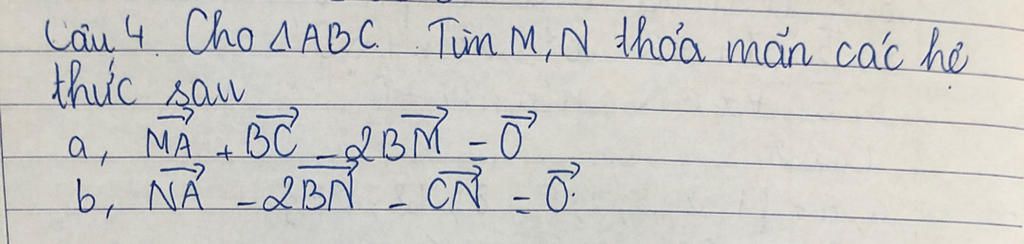 Câu 4. Cho △ABC. Tìm M, N thỏa mãn các hệ
thức sau
a, $\overrightarrow{MA} + \overrightarrow{BC} - 2\overrightarrow{BM} = \overrightarrow{0}$
b, $\overrightarrow{NA} - 2\overrightarrow{BN} - \overrightarrow{CN} = \overrightarrow{0}$.